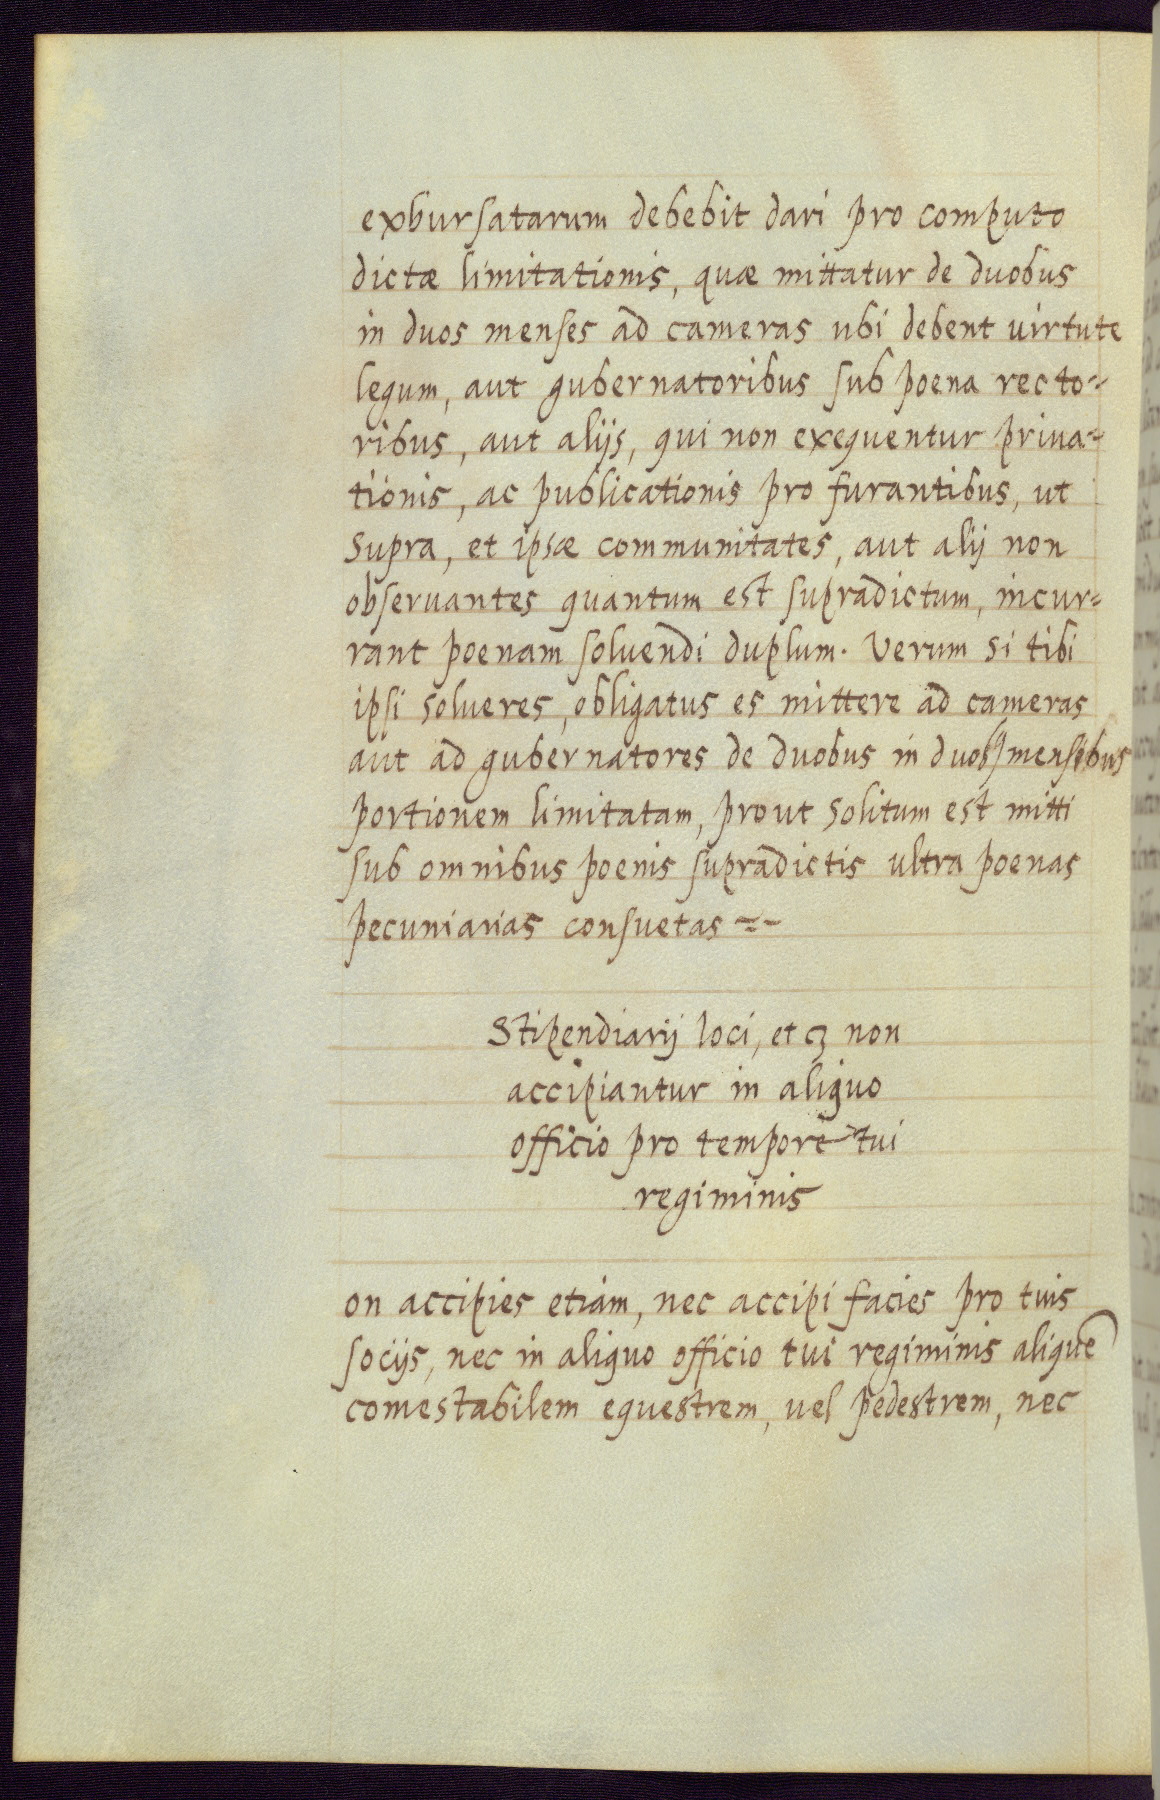 exbursatarum debebit dari pro computo
dictæ limitationis, quæ mittatur de duobus
in duos menses ad cameras ubi debent virtute
legum, aut gubernatoribus sub poena recto=
ribus, aut alijs, qui non exequentur priua=
tionis, ac publicationis pro furantibus, ut
supra, et ipsæ communitates, aut alij non
obseruantes quantum est supradictum, incur=
rant poenam soluendi duplum. Verum si tibi
ipsi solueres, obligatus es mittere ad cameras
aut ad gubernatores de duobus in mensibus
portionem limitatam, prout solitum est mitti
sub omnibus poenis supradictis ultra poenas
pecuniarias consuetas
Stipendiarij loci, et non
accipiantur in aliquo
officio pro tempore tui
regiminis
on accipies etiam, nec accipi facies pro tuis
socijs, nec in aliquo officio tui regiminis aliquē
comestabilem equestrem, uel pedestrem, nec